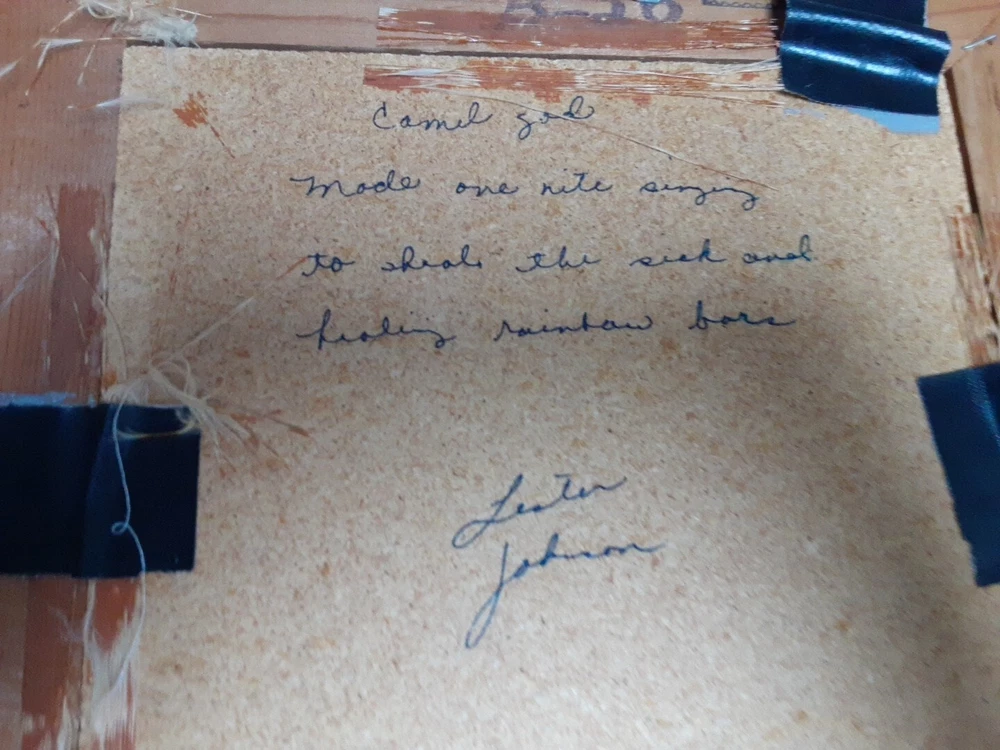 Camel god
Made one nite singing
to sheal the sick and
healing rainbow bars
Lester
Johnson